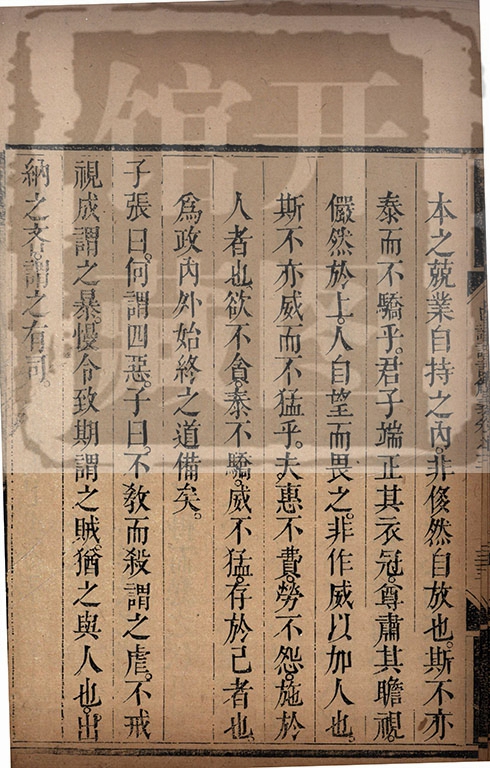 本之兢業自持之內。非倐然自放也。斯不亦
泰而不驕乎。君子端正其衣冠。尊肅其瞻視。
儼然於上。人自望而畏之。非作威以加人也。
斯不亦威而不猛乎。夫惠不費。勞不怨。施於
人者也。欲不貪。泰不驕。威不猛。存於己者也。
爲政內外始終之道備矣。
子張曰。何謂四惡。子曰。不敎而殺謂之虐。不戒
視成謂之暴。慢令致期謂之賊。猶之與人也。出
納之吝。謂之有司。